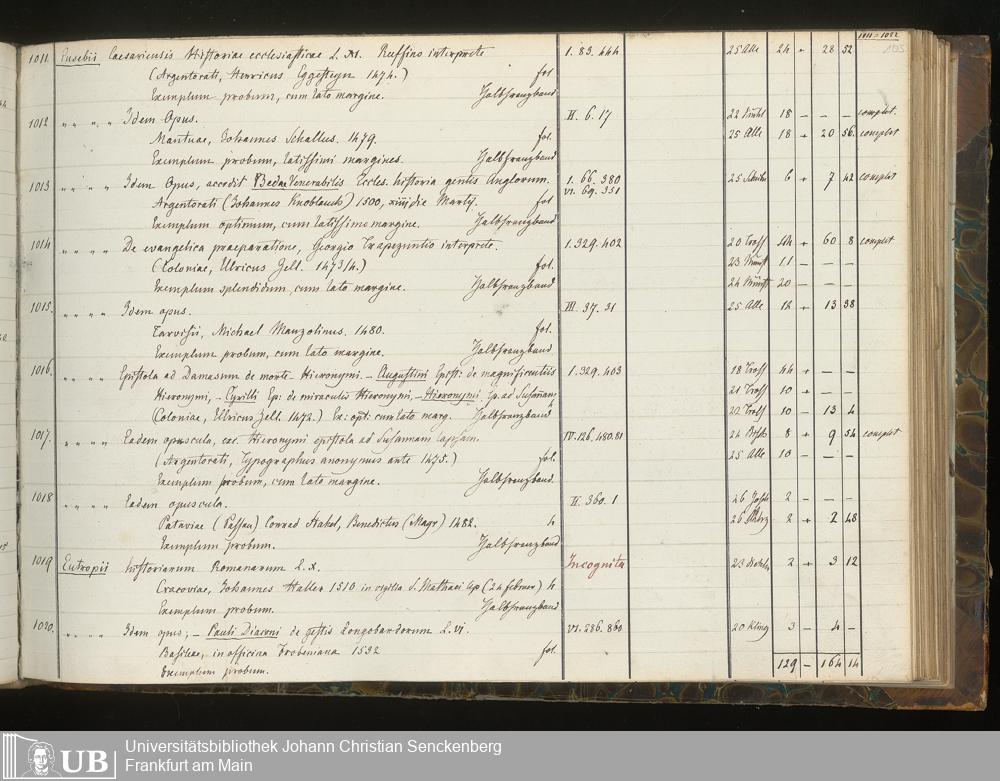 1011=1022
103
1011. Eusebii Caesariensis Historiae ecclesiasticae L. XI. Ruffino interprete I. 83. 444 25 Alle 24 + 28 52
(Argentorati, Henricus Eggesteyn 1474.) fol.
Exemplum probum, cum lato margine. Halbfranzband
1012 " " " " Idem Opus. II. 6. 17 18 — — — complet.
Mantuae, Johannes Schallus. 1479. fol. 25 Alle 18 + 20 56. complet
Exemplum probum, latissimi margines. Halbfranzband
1013 " " " " Idem Opus, accedit Bedae Venerabilis Eccles. historia gentis Anglorum. I. 66. 380 6 + 7 42 complet
VI. 69. 351
Argentorati (Johannes Knoblauch) 1500, xiiij die Martij. fol
Exemplum optimum, cum latissimo margine. Halbfranzband
1014 " " " " De evangelica praeparatione, Georgio Trapezuntio interprete. I. 329. 402 20 Tross 44 + 60 8 complet
(Coloniae, Ulricus Zell. 1473/4.) fol. 11 — — —
Exemplum splendidum, cum lato margine. Halbfranzband 20 — — —
1015. " " " " Idem opus. III. 37. 31 25 Alle 12 + 13 38
Tarvisii, Michael Manzolinus. 1480. fol.
Exemplum probum, cum lato margine. Halbfranzband
1016. " " " " Epistola ad Damasum de morte Hieronymi. — Augustini Epist: de magnificentiis I. 329. 403 18 Tross 44 + — —
Hieronymi, — Cyrilli Ep: de miraculis Hieronymi, — Hieronymi Ep. ad Susannam, 21 Tross 10 + — —
(Coloniae, Ulricus Zell. 1472.) Ex: opt: cum lato marg. Halbfranzband 20 Tross 10 — 13 4
1017. " " " " Eadem opuscula, exc. Hieronymi epistola ad Susannam lapsam. IV. 126. 480.81 8 + 9 54 complet
(Argentorati, Typographus anonymus ante 1475.) fol. 25 Alle 10 — — —
Exemplum probum, cum lato margine. Halbfranzband.
1018 " " " " Eadem opuscula. II. 360. 1 2 — — —
Pataviae (Passau) Conrad Stahel, Benedictus (Mayr) 1482. 4 2 + 2 48
Exemplum probum. Halbfranzband
1019 Eutropii historiarum Romanarum L. X. Incognita 2 + 3 12
Cracoviae, Johannes Haller 1510 in vigilia S. Mathaei Ap (24 februar) 4
Exemplum probum. Halbfranzband
1020. " " " " Idem opus; — Pauli Diaconi de gestis Longobardorum L. VI. VI. 286. 860 20 Kling 3 — 4 —
Basileae, in officina Frobeniana 1532 fol.
Exemplum probum. 129 — 164 14
UB
Universitätsbibliothek Johann Christian Senckenberg
Frankfurt am Main